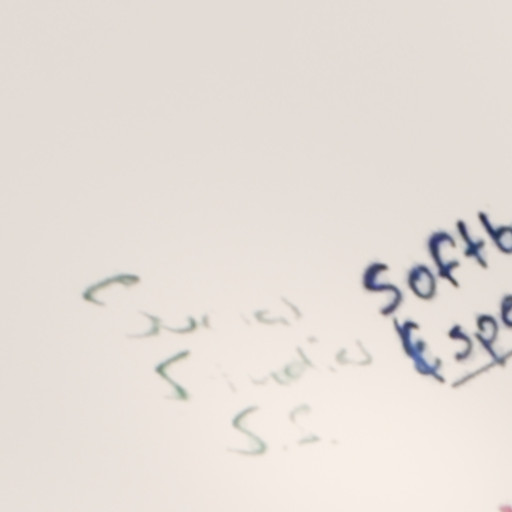 Social
Studies
S.S.
Softb
& spo